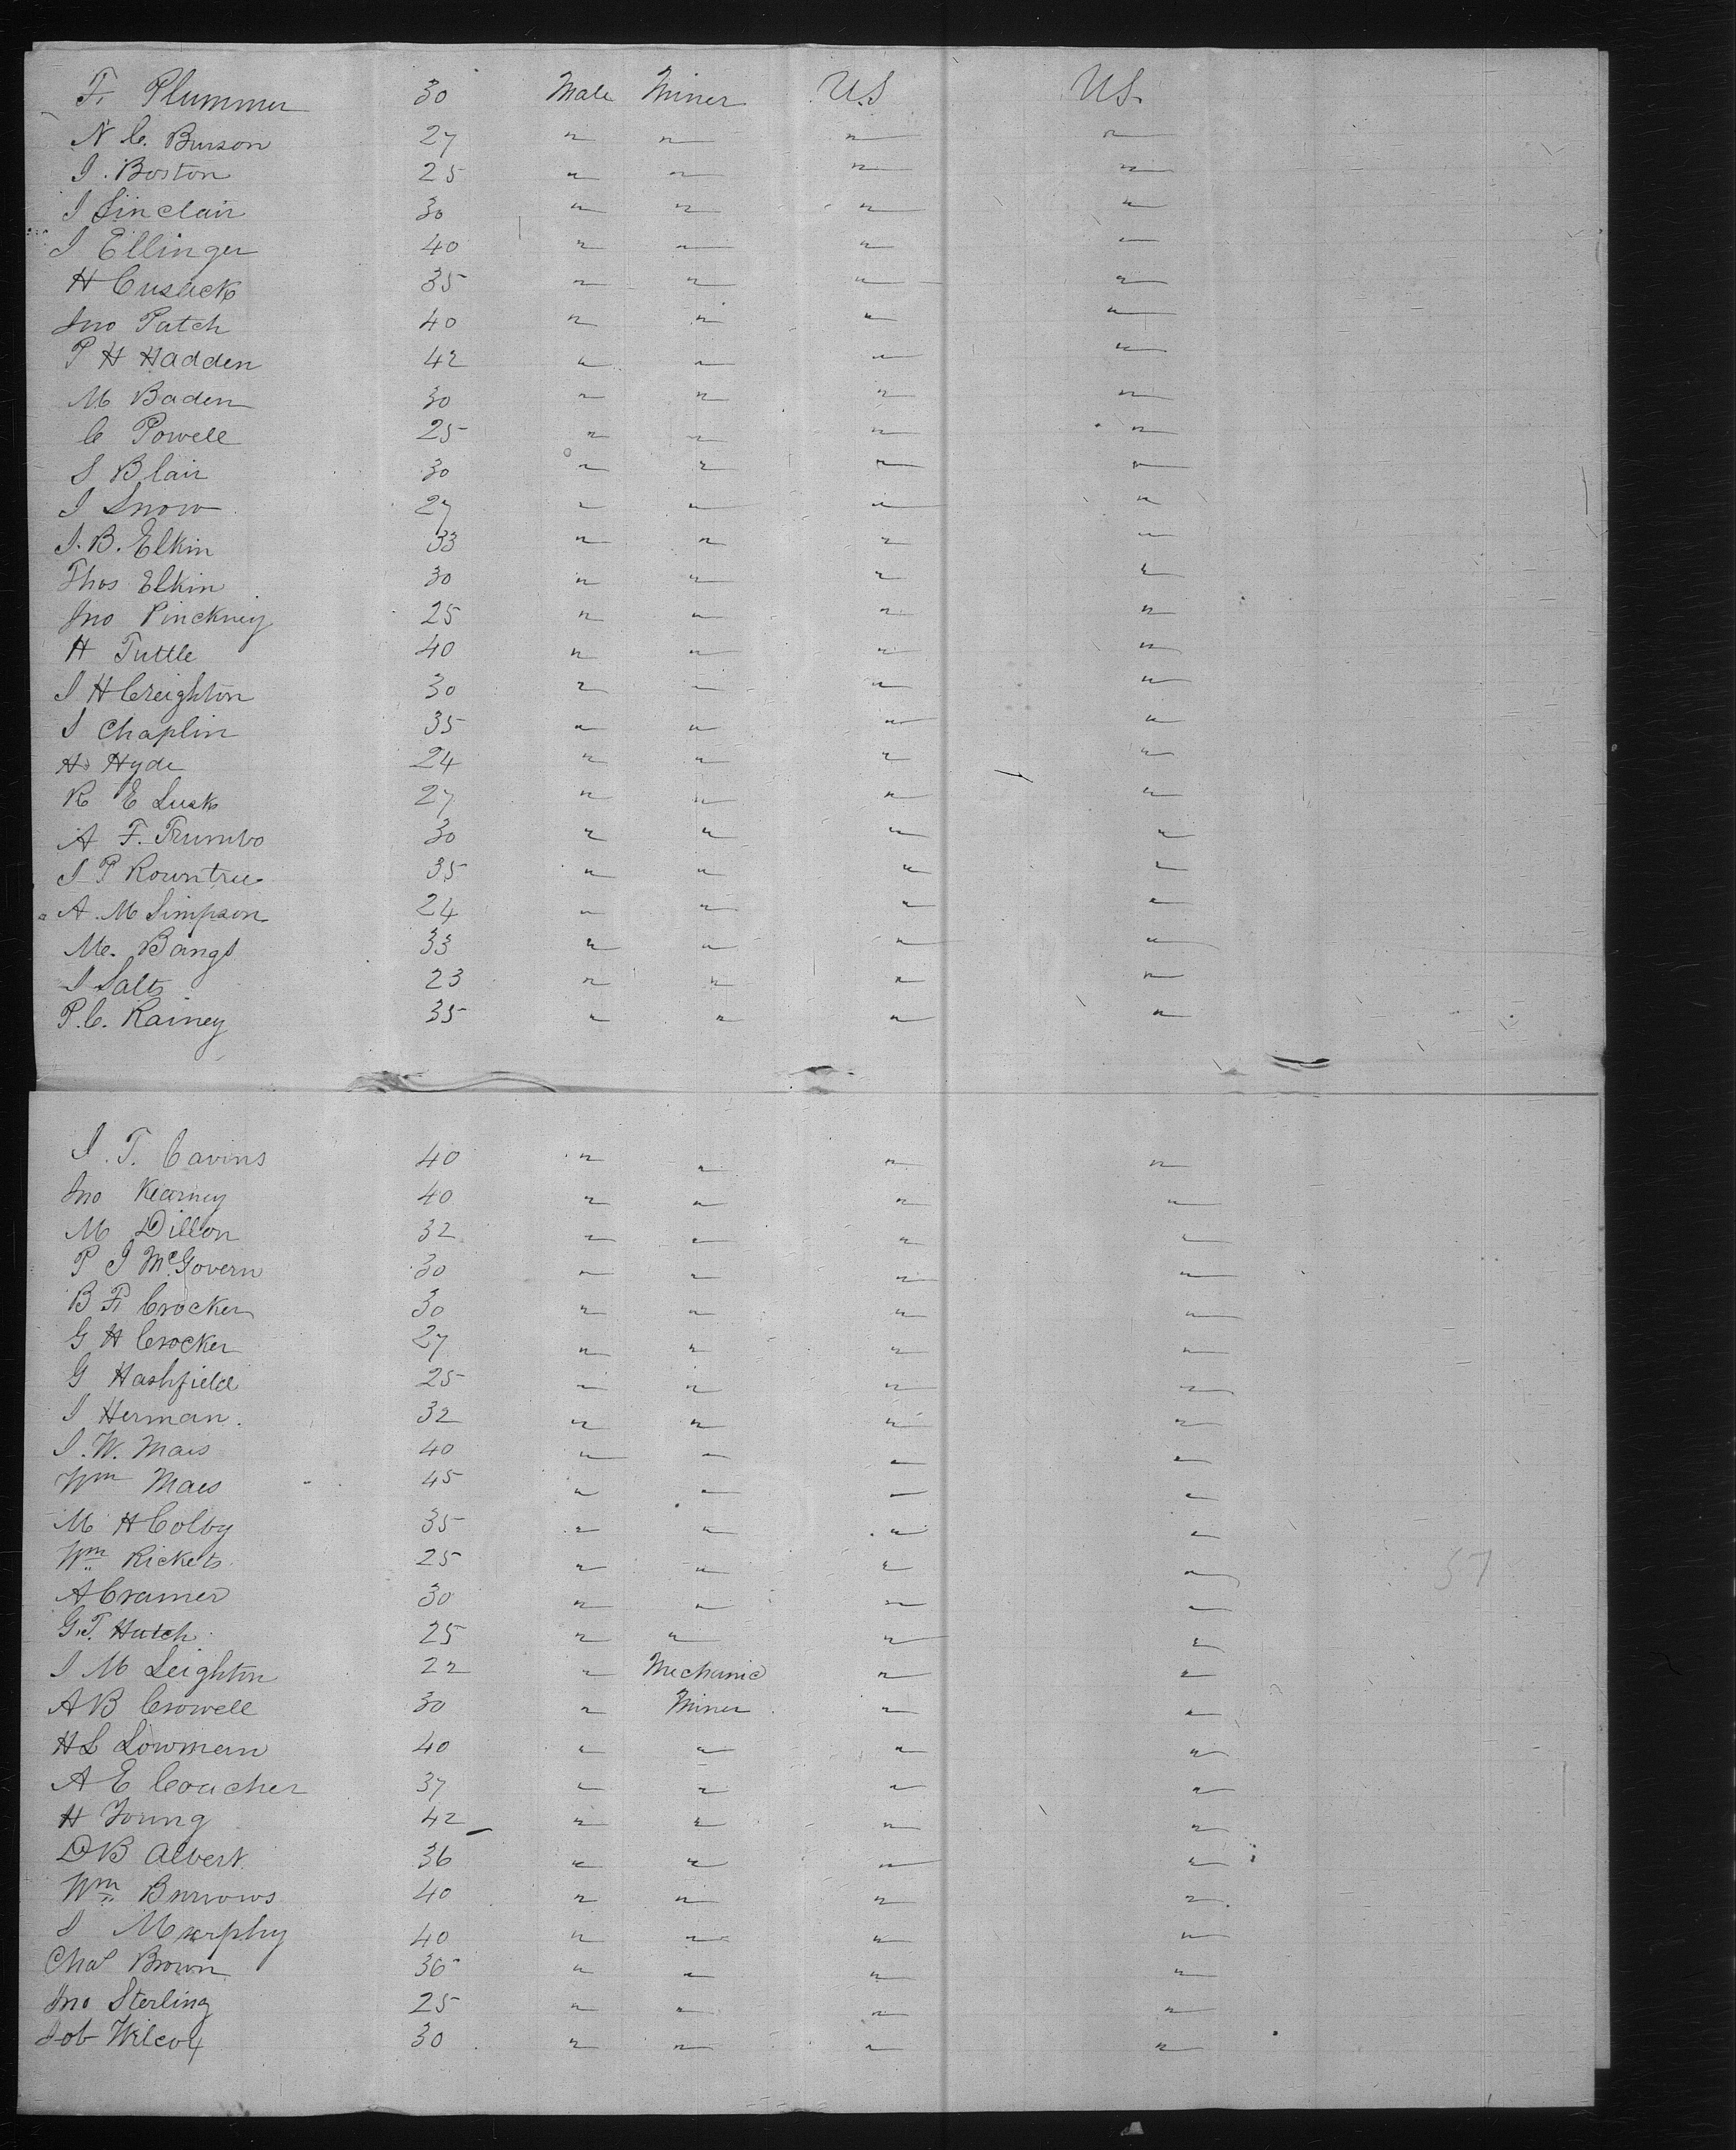 F. Plummer 30 Male Miner U.S U.S.
N C. Burson 27 " " " "
J. Boston 25 " " " "
J Sinclair 30 " " " "
J Ellinger 40 " " " "
H Cusack 35 " " " "
Jno Patch 40 " " " "
P H Hadden 42 " " " "
M Baden 30 " " " "
C Powell 25 " " " "
S Blair 30 " " " "
J Snow 27 " " " "
J. B. Elkin 33 " " " "
Thos Elkin 30 " " " "
Jno Pinckney 25 " " " "
H Tuttle 40 " " " "
J H Creighton 30 " " " "
S Chaplin 35 " " " "
H Hyde 24 " " " "
R E Lusk 27 " " " "
A F. Trumbo 30 " " " "
J P Rowntree 35 " " " "
A. M Simpson 24 " " " "
Me. Bangs 33 " " " "
J Salts 23 " " " "
P. C. Rainey 35 " " " "
J. T. Cavins 40 " " " "
Jno Kearney 40 " " " "
M Dillon 32 " " " "
P J McGovern 30 " " " "
B F Crocker 30 " " " "
G H Crocker 27 " " " "
G Hashfield 25 " " " "
J Herman. 32 " " " "
J. W. Maes 40 " " " "
Wm Maes 45 " " " "
M H Colby 35 " " " "
Wm Rickets 25 " " " "
A Cramer 30 " " " "
G. T. Hutch 25 " " " "
J M Leighton 22 " Mechanic " "
A B Crowell 30 " Miner " "
H L Lowman 40 " " " "
A E Coucher 37 " " " "
H Young 42 " " " "
D B Albert 36 " " " "
Wm Burrows 40 " " " "
J Murphy 40 " " " "
Chas Brown 36 " " " "
Jno Sterling 25 " " " "
Job Wilcox 30 " " " "
57